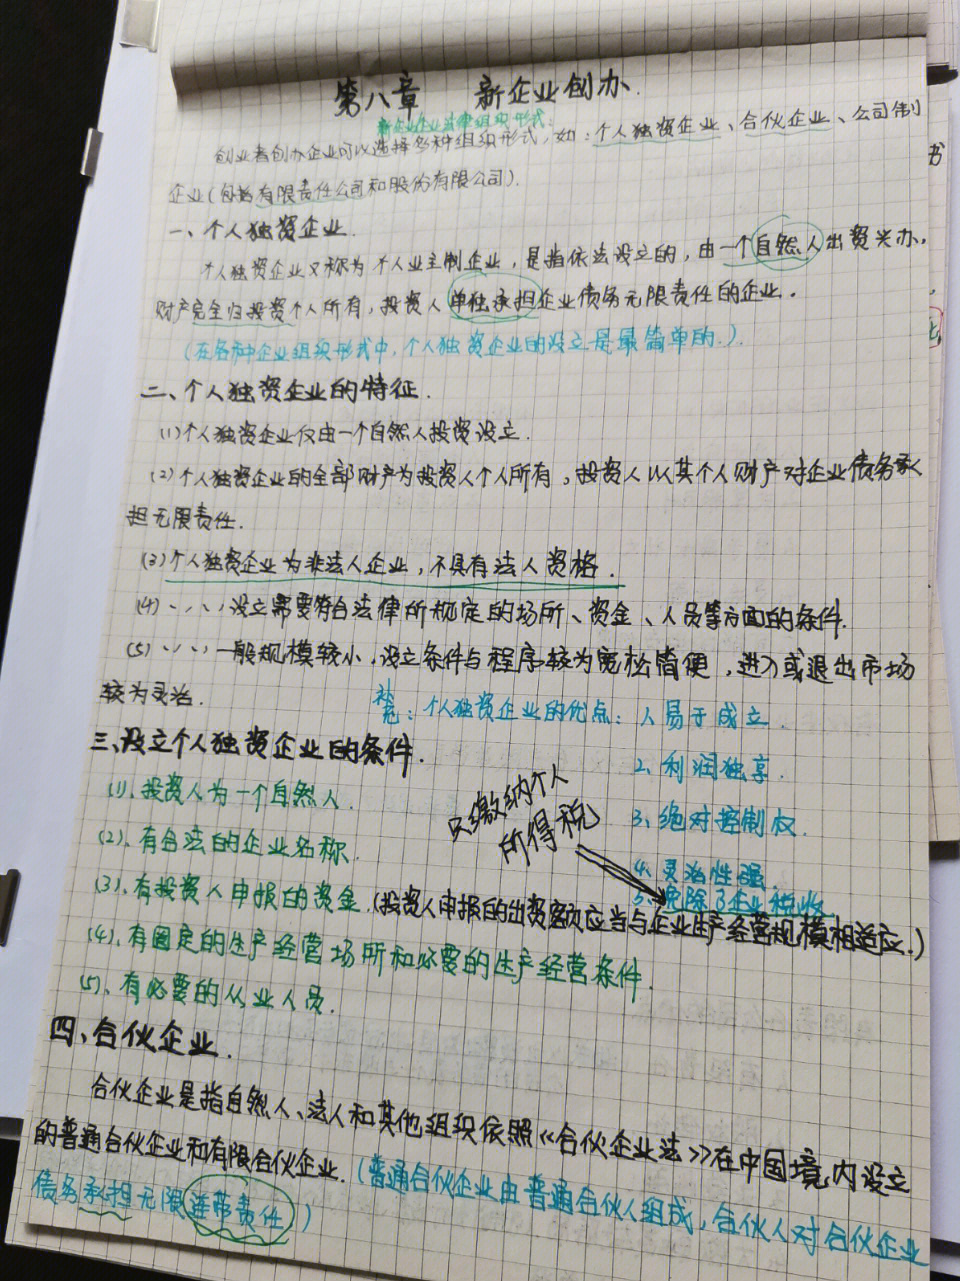 第八章 新企业创办.
新企业企业法律组织形式:
创业者创办企业可以选择多种组织形式,如:个人独资企业、合伙企业、公司制
企业(包括有限责任公司和股份有限公司).
一、个人独资企业.
个人独资企业又称为个人业主制企业,是指依法设立的,由一个自然人出资兴办,
财产完全归投资个人所有,投资人单独承担企业债务无限责任的企业.
(在各种企业组织形式中,个人独资企业的设立是最简单的.)
二、个人独资企业的特征.
(1)个人独资企业仅由一个自然人投资设立.
(2)个人独资企业的全部财产为投资人个人所有,投资人以其个人财产对企业债务承
担无限责任.
(3)个人独资企业为非法人企业,不具有法人资格.
(4)、、、、设立需要符合法律所规定的场所、资金、人员等方面的条件.
(5)、、、、一般规模较小,设立条件与程序较为宽松简便,进入或退出市场
较为灵活.
补充:个人独资企业的优点:1、易于成立.
三、设立个人独资企业的条件.
2、利润独享.
(1)、投资人为一个自然人.
只缴纳个人
所得税
3、绝对控制权.
(2)、有合法的企业名称.
4、灵活性强.
5、免除了企业税收
(3)、有投资人申报的资金.(投资人申报的出资额应当与企业生产经营规模相适应.)
(4)、有固定的生产经营场所和必要的生产经营条件.
(5)、有必要的从业人员.
四、合伙企业.
合伙企业是指自然人、法人和其他组织依照《合伙企业法》在中国境内设立
的普通合伙企业和有限合伙企业.(普通合伙企业由普通合伙人组成,合伙人对合伙企业
债务承担无限连带责任)